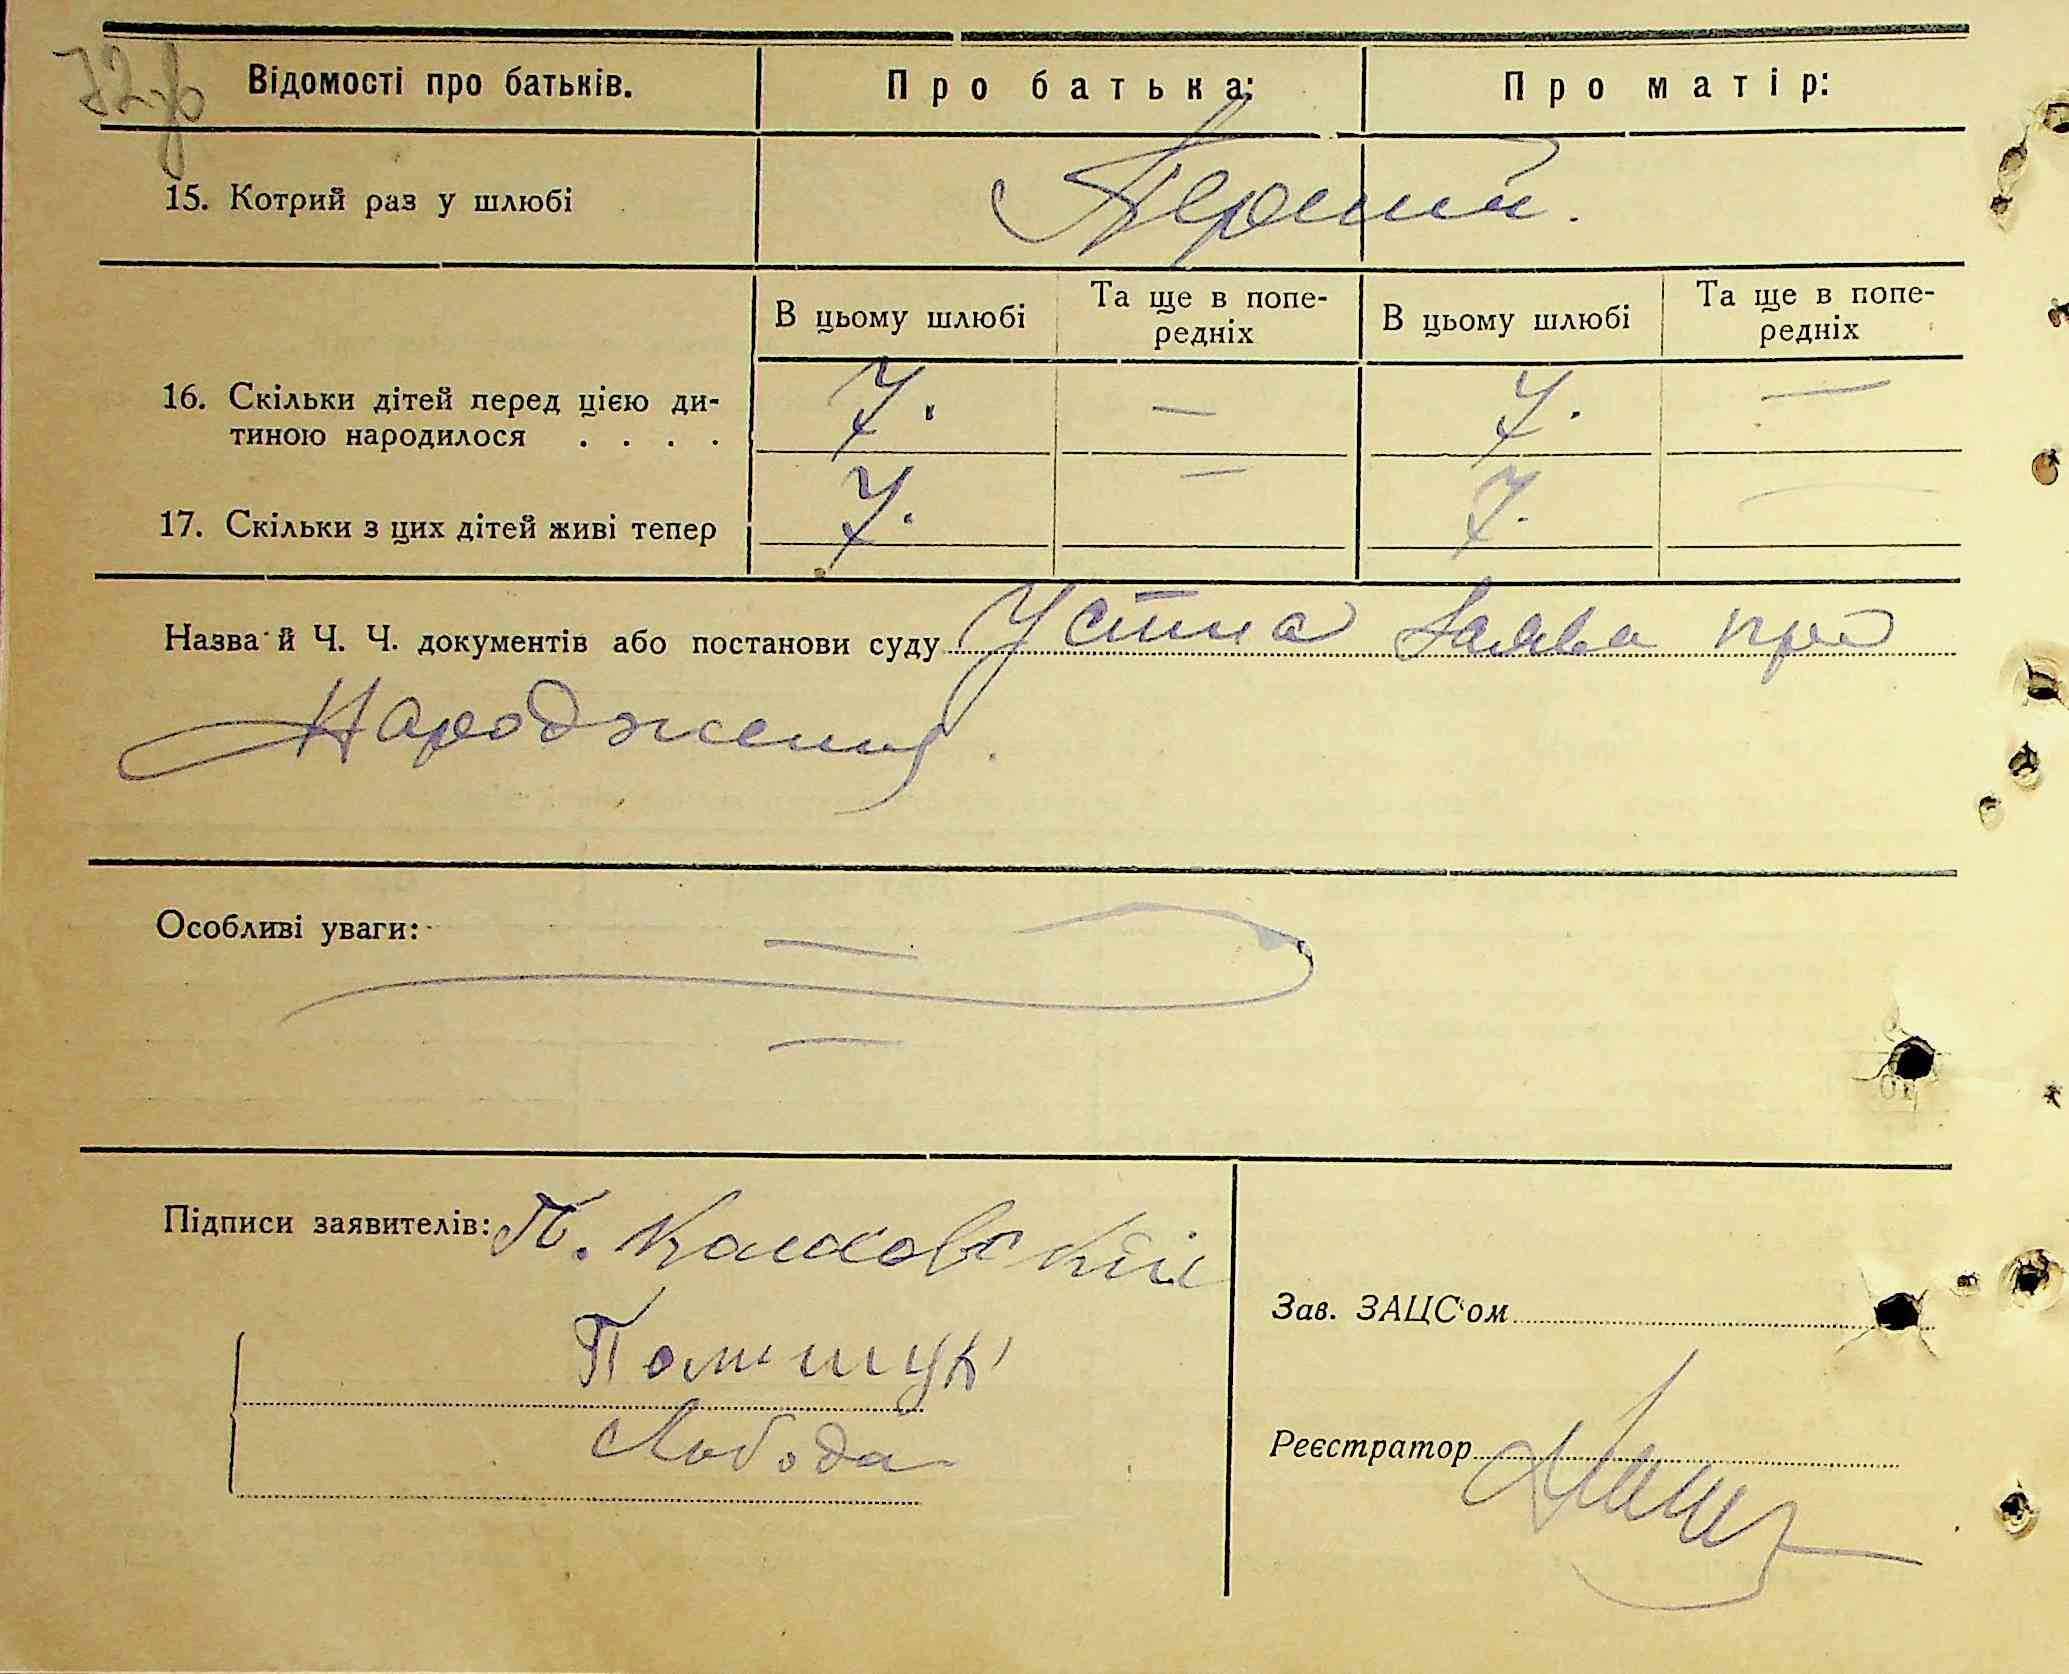 Відомості про батьків. Про батька: Про матір:
15. Котрий раз у шлюбі Перший.
В цьому шлюбі Та ще в попе- В цьому шлюбі Та ще в попе-
редніх редніх
16. Скільки дітей перед цією ди- 7. — 7. —
тиною народилося . . . .
17. Скільки з цих дітей живі тепер 7. — 7. —
Назва й Ч. Ч. документів або постанови суду Устна Заява про
Народження.
Особливі уваги: —
Підписи заявителів: П.
Зав. ЗАЦС'ом
Полищук
Лобода
Реєстратор